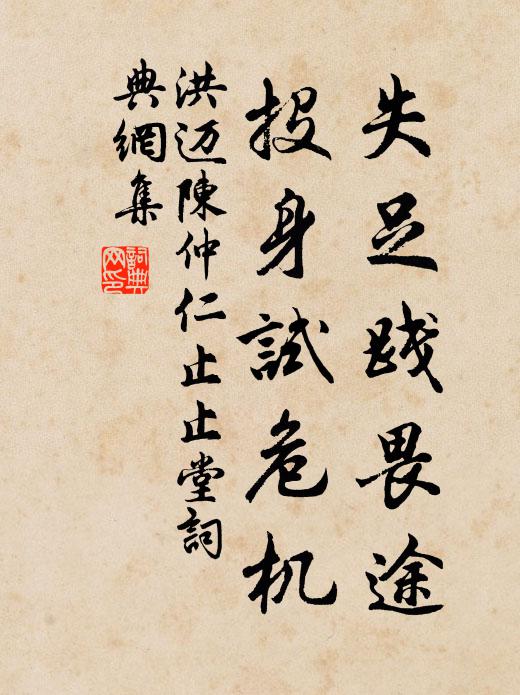 失足践畏途
投身試危机
洪迈陳仲仁止止堂詞
典網集
詞典
网印